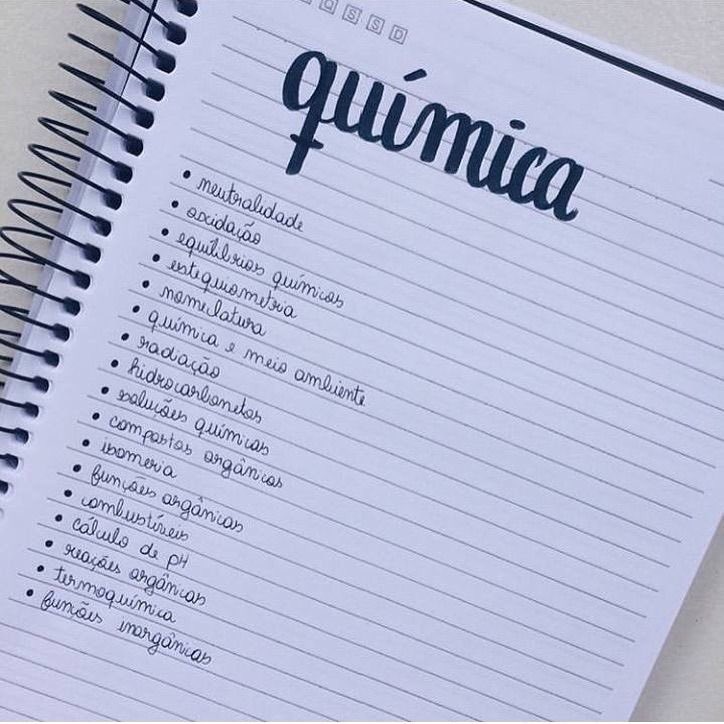 Q S S D
química
• neutralidade
• oxidação
• equilíbrios químicos
• estequiometria
• nomeclatura
• química e meio ambiente
• radiação
• hidrocarbonetos
• soluções químicas
• compostos orgânicos
• isomeria
• funções orgânicas
• combustíveis
• cálculo de pH
• reações orgânicas
• termoquímica
• funções inorgânicas